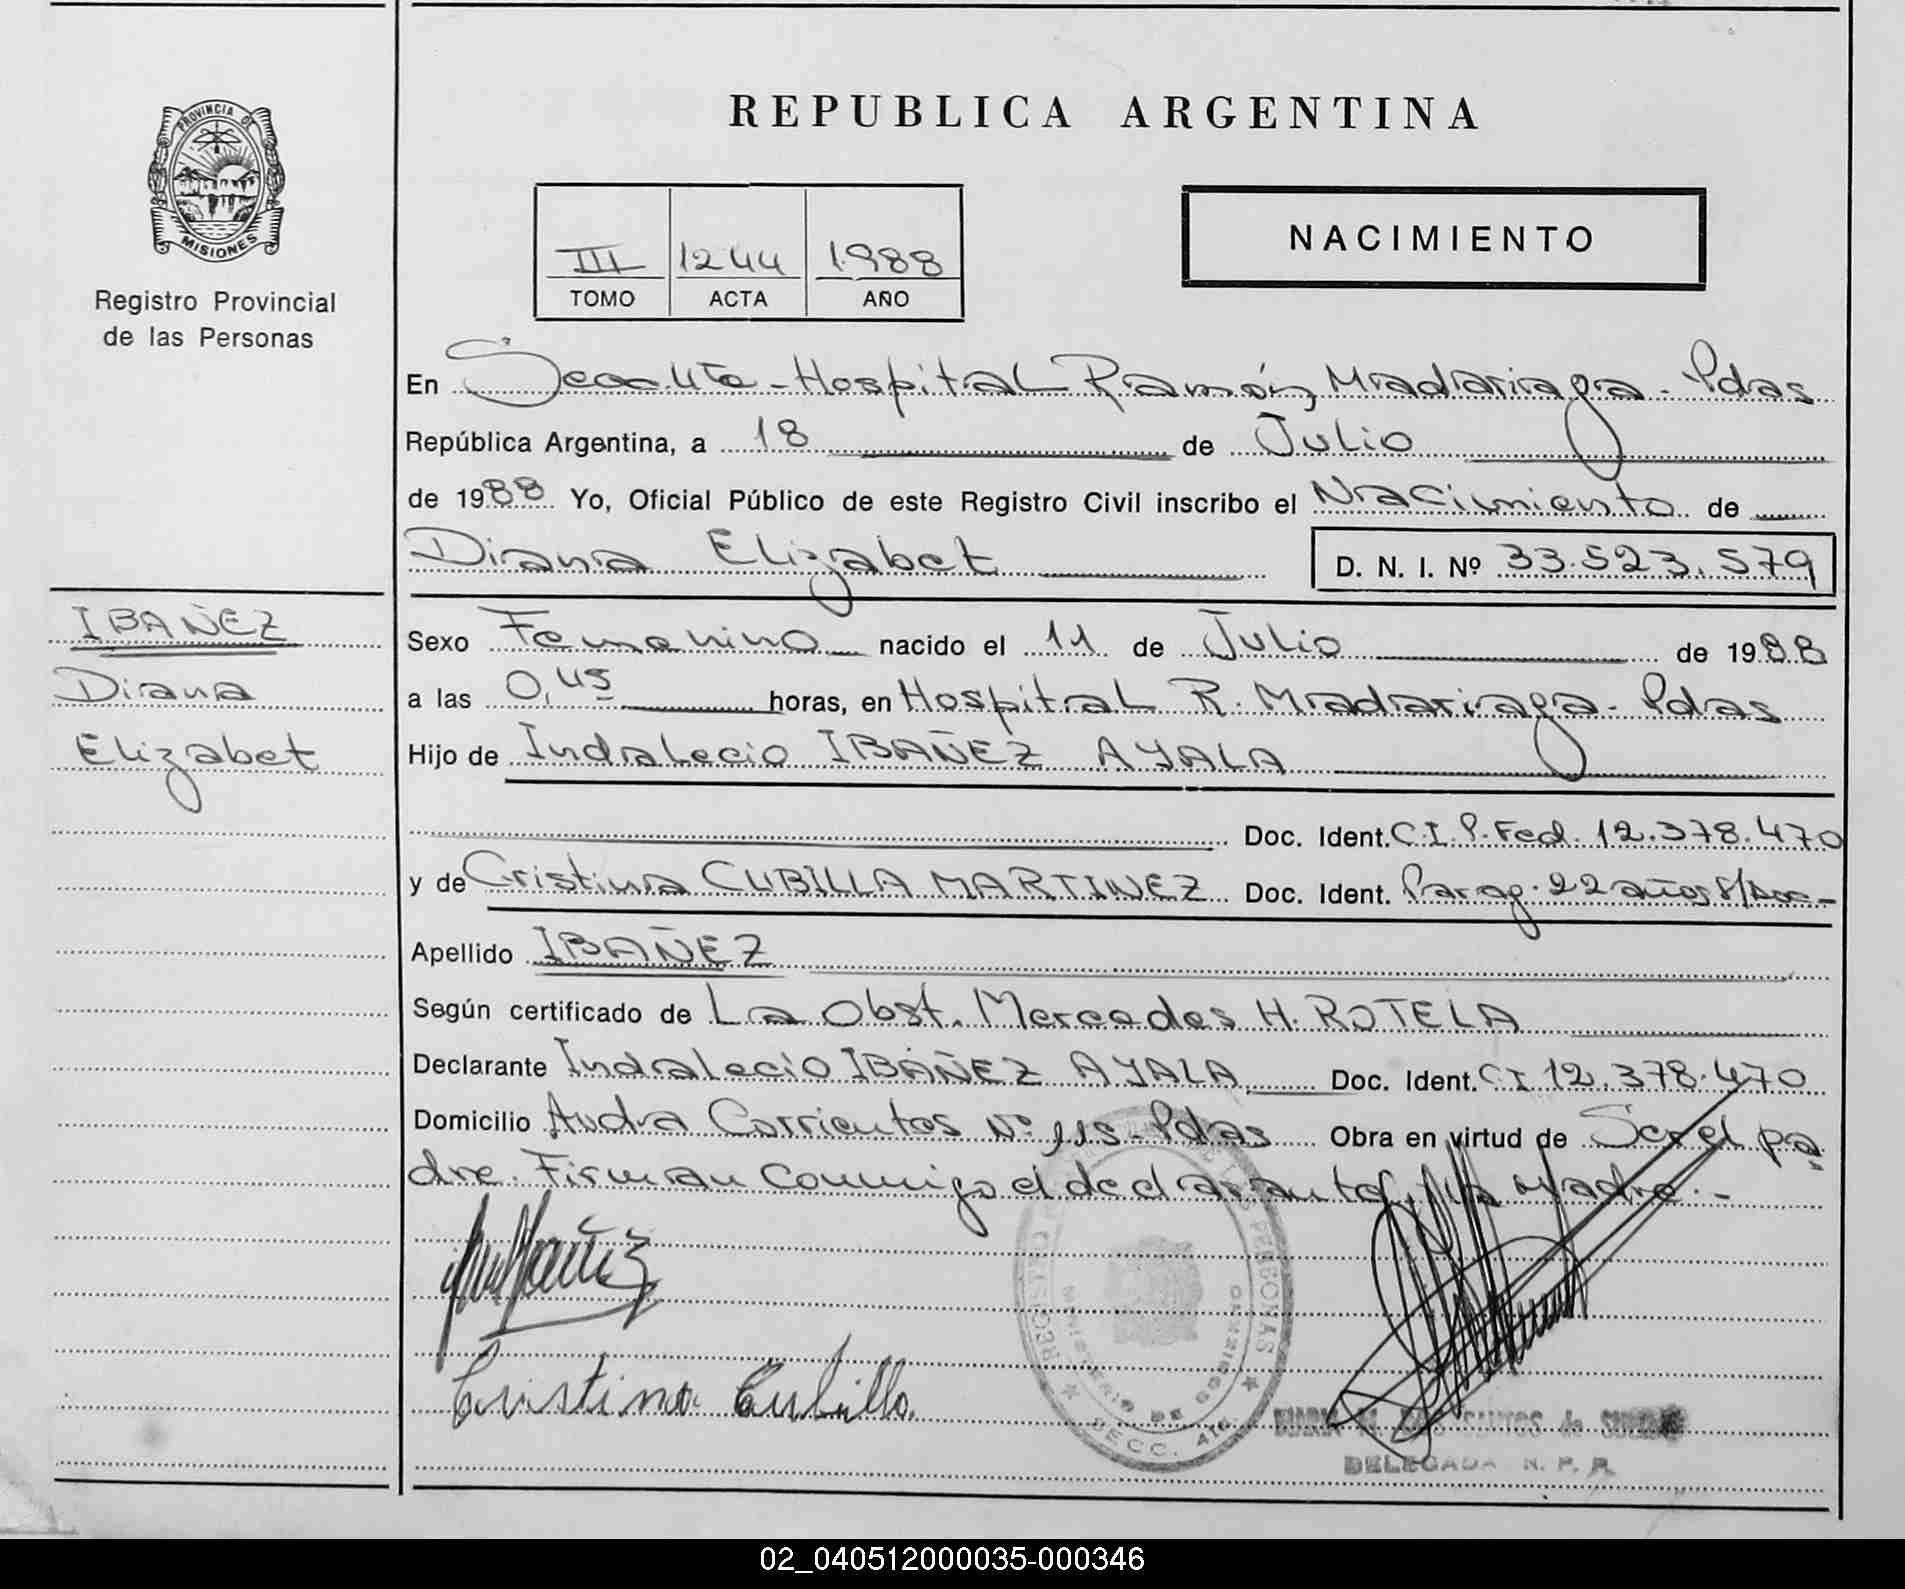 REPUBLICA ARGENTINA
PROVINCIA DE
MISIONES
Registro Provincial
de las Personas
III 1244 1.988
TOMO ACTA AÑO
NACIMIENTO
En Secc. 4ta - Hospital Ramón Madariaga - Pdas
República Argentina, a 18 de Julio
de 1988 Yo, Oficial Público de este Registro Civil inscribo el Nacimiento de
Diana Elizabet D. N. I. Nº 33.523.579
IBAÑEZ
Diana
Elizabet
Sexo Femenino nacido el 11 de Julio de 1988
a las 0,45 horas, en Hospital R. Madariaga - Pdas
Hijo de Indalecio IBAÑEZ AYALA
Doc. Ident. C.I.P. Fed. 12.378.470
y de Cristina CUBILLA MARTINEZ Doc. Ident. Parag. 22 años S/Doc-
Apellido IBAÑEZ
Según certificado de La Obst. Mercedes H. ROTELA
Declarante Indalecio IBAÑEZ AYALA Doc. Ident. CI 12.378.470
Domicilio Avda Corrientes Nº 115 - Pdas Obra en virtud de Ser el pa
dre. Firman conmigo el declarante y la Madre. -
Cristina Cubilla
REGISTRO DE LAS PERSONAS
MINISTERIO DE GOBIERNO
SECC. 4ta
SANTOS de
DELEGADA R. P. P.
02_040512000035-000346